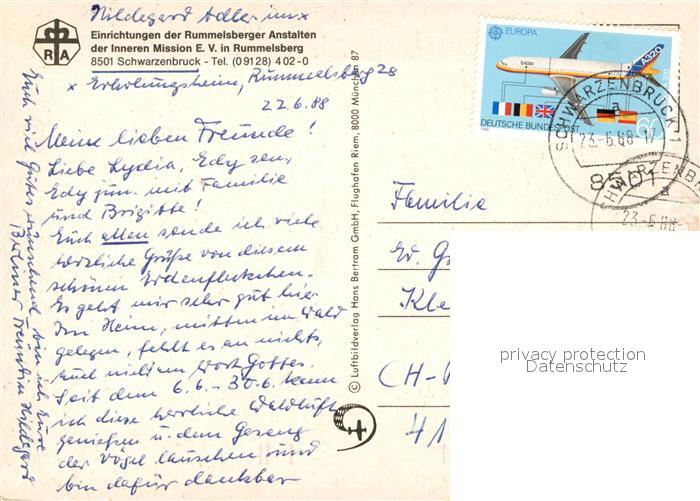 Hildegard Adler im x
Einrichtungen der Rummelsberger Anstalten
der Inneren Mission E. V. in Rummelsberg
8501 Schwarzenbruck - Tel. (09128) 402-0
RA
x Erholungsheim, Rummelsberg 28
22.6.88
Meine lieben Freunde!
Liebe Lydia, Edy sen,
Edy jun. mit Familie
und Brigitte!
Euch allen sende ich viele
herzliche Grüße von diesem
schönen Erdenfleckchen.
Es geht mir sehr gut hier.
Im Heim, mitten im Wald
gelegen, fehlt es an nichts,
auch nicht am Wort Gottes.
Seit dem 6.6. - 30.6. kann
ich diese herrliche Waldluft
genießen u. dem Gesang
der Vögel lauschen und
bin dafür dankbar
Euch viel Gutes wünschend bin ich Eure
Berliner Freundin Hildegard
© Luftbildverlag Hans Bertram GmbH, Flughafen Riem, 8000 München 87
EUROPA
A320
DEUTSCHE BUNDESPOST
60
SCHWARZENBRUCK 1
a
23.-6.88-17
8501
SCHWARZENB
a
23.-6.88-
Familie
Ed. G
Kle
CH-
41
privacy protection
Datenschutz